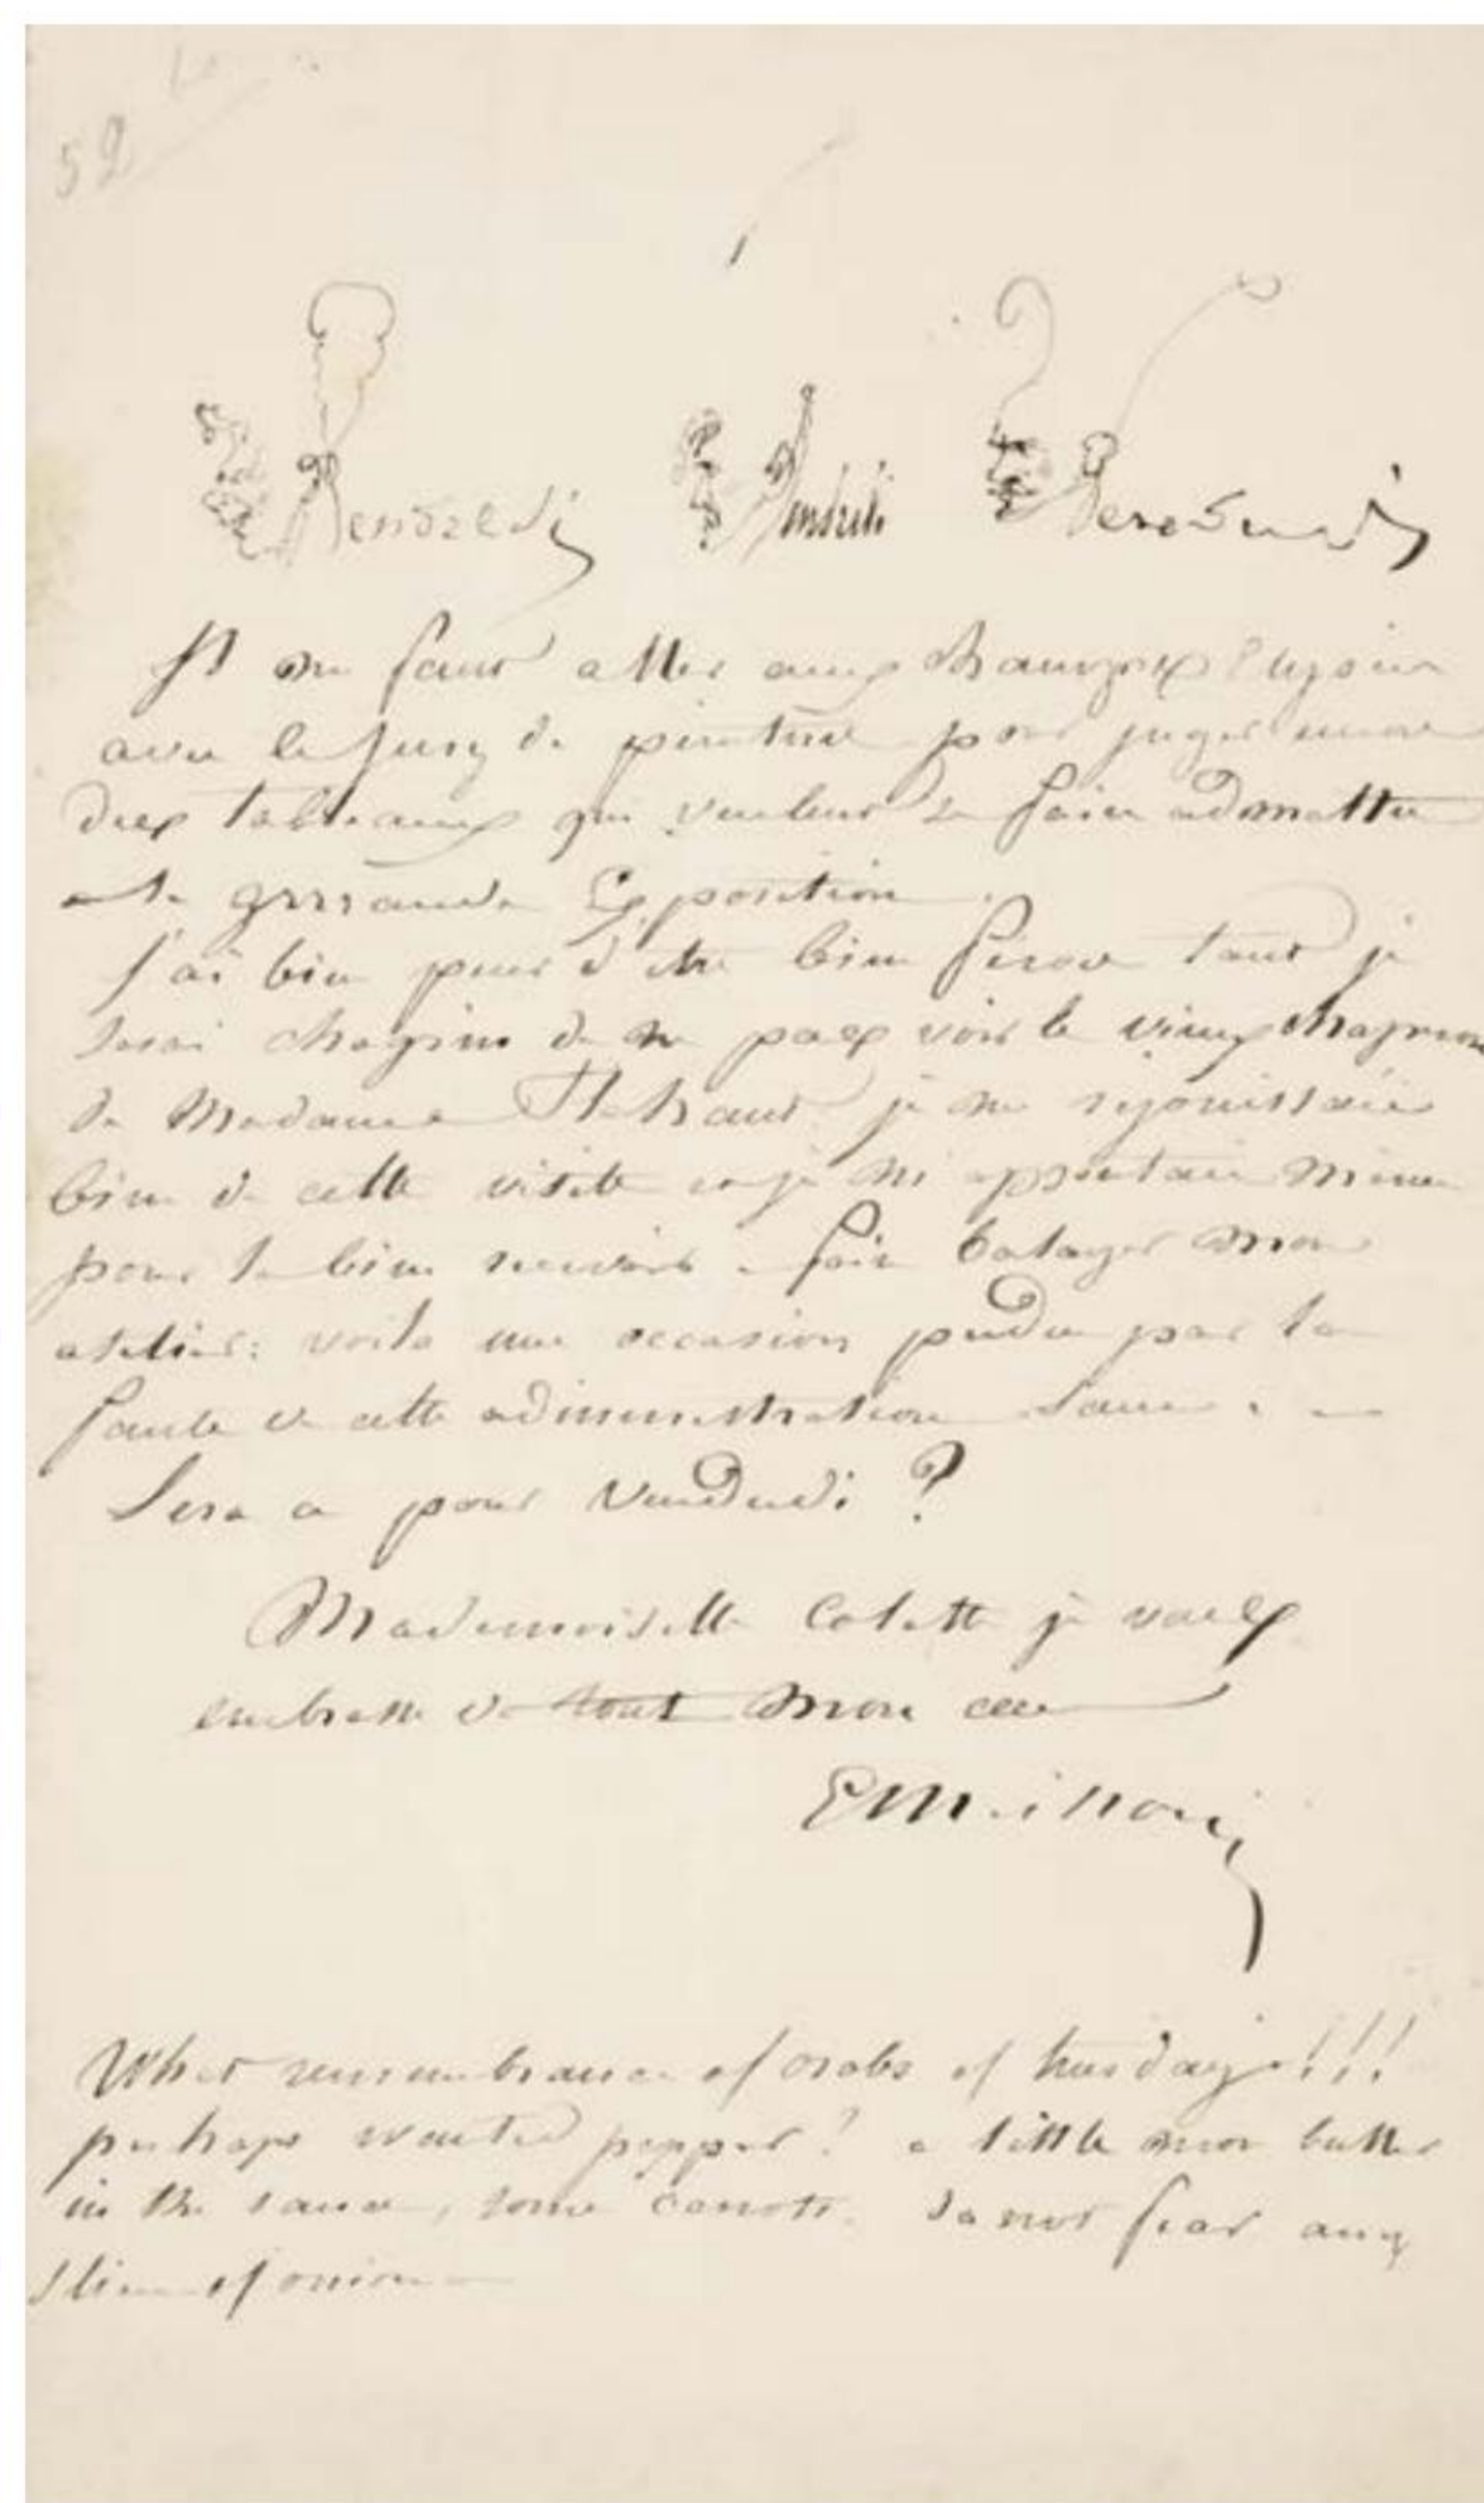 52
Vendredi Vendredi Vendredi
Il me faut aller aux Chamzelx Elysées
avec le jury de peinture pour juger encore
dex tableaux qui veulent se faire admettre
a la grrrande Exposition.
J'ai bien peur d'être bien féroce tant je
serai chagrin de ne pax voir le vieux
de Madame je me rejouissais
bien de cette visite et je m'apprêtais même
pour la bien recevoir a faire balayer mon
atelier: voila une occasion perdue par la
faute de cette administration
Sera ce pour Vendredi?
Mademoiselle Colette je vous
embrasse de tout mon cœur
EMeissonier
What remembrance of crabs of tuesday!!!
perhaps wanted pepper? a little more butter
in the sauce, some carrots. do not fear any
slice of onion